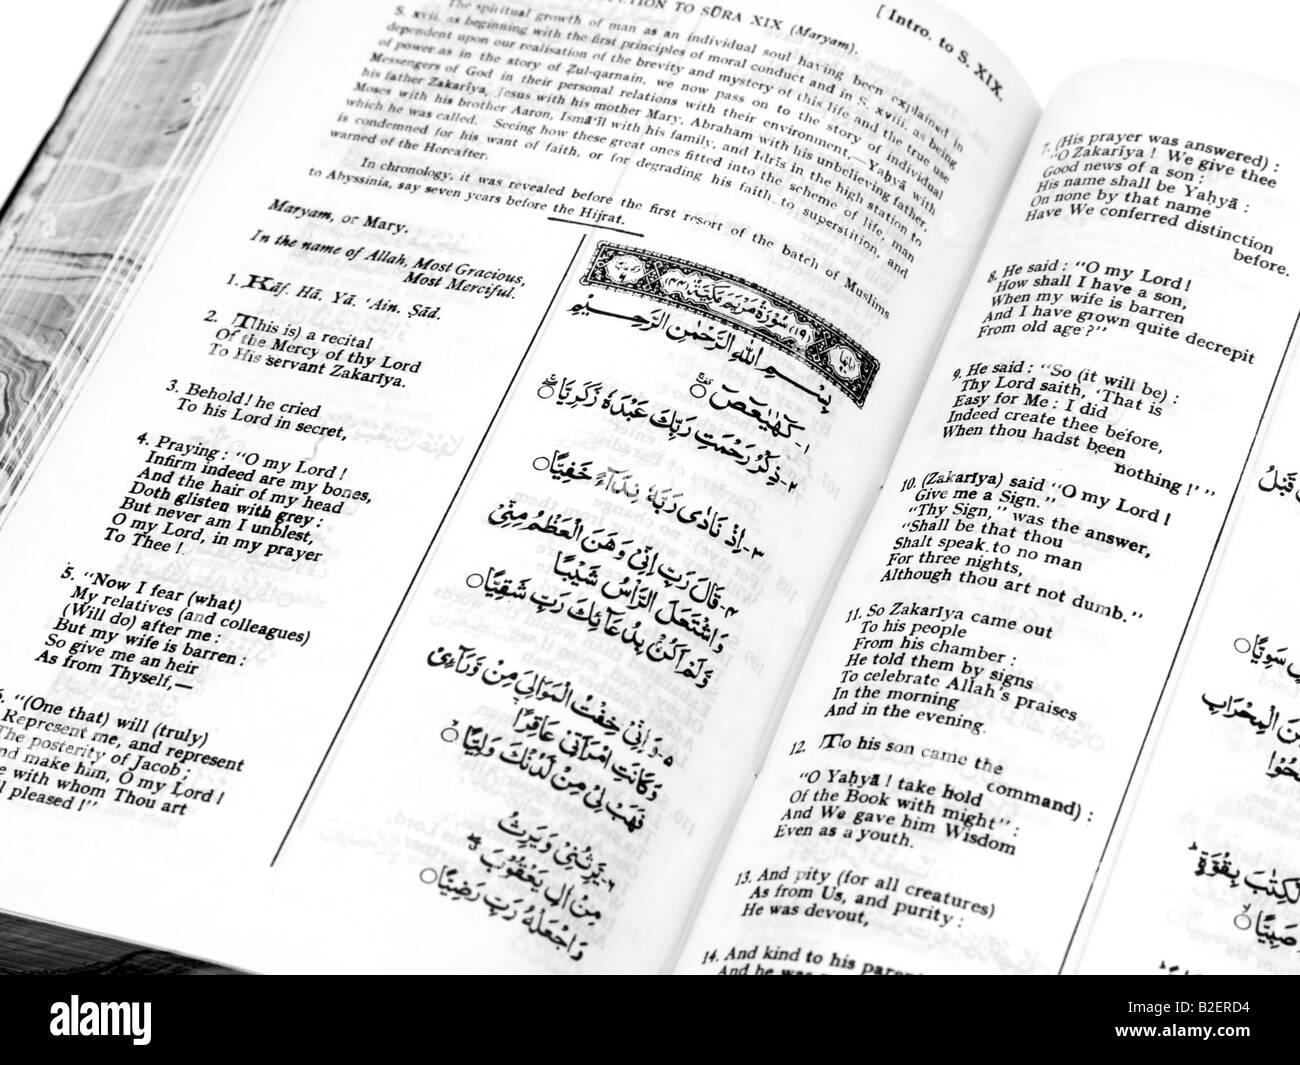 CTION TO SŪRA XIX (Maryam).
[ Intro. to S. XIX.
The spiritual growth of man as an individual soul having been explained in
S. xvii. as beginning with the first principles of moral conduct and in S. xviii. as being
dependent upon our realisation of the brevity and mystery of this life and the true use
of power as in the story of Zul-qarnain, we now pass on to the story of individual
Messengers of God in their personal relations with their environment,—Yaḥyā with
his father Zakarīya, Jesus with his mother Mary, Abraham with his unbelieving father,
Moses with his brother Aaron, Ismā'īl with his family, and Idrīs in the high station to
which he was called. Seeing how these great ones fitted into the scheme of life, man
is condemned for his want of faith, or for degrading his faith to superstition, and
warned of the Hereafter.
In chronology, it was revealed before the first resort of the batch of Muslims
to Abyssinia, say seven years before the Hijrat.
Maryam, or Mary.
In the name of Allah, Most Gracious,
Most Merciful.
1. Kāf. Hā. Yā. 'Ain. Ṣād.
2. (This is) a recital
Of the Mercy of thy Lord
To His servant Zakarīya.
3. Behold! he cried
To his Lord in secret,
4. Praying: "O my Lord!
Infirm indeed are my bones,
And the hair of my head
Doth glisten with grey:
But never am I unblest,
O my Lord, in my prayer
To Thee!
5. "Now I fear (what)
My relatives (and colleagues)
(Will do) after me:
But my wife is barren:
So give me an heir
As from Thyself,—
"(One that) will (truly)
Represent me, and represent
The posterity of Jacob;
make him, O my Lord!
with whom Thou art
pleased!"
(١٩) سُوْرَةُ مَرْيَمَ مَكِّيَّةٌ (٤٤)
بِسْمِ اللهِ الرَّحْمٰنِ الرَّحِيْمِ
١- كٓهٰيٰعٓصٓ ○
٢- ذِكْرُ رَحْمَتِ رَبِّكَ عَبْدَهٗ زَكَرِيَّا ○
٣- اِذْ نَادٰى رَبَّهٗ نِدَآءً خَفِيًّا ○
٤- قَالَ رَبِّ اِنِّىْ وَهَنَ الْعَظْمُ مِنِّىْ
وَاشْتَعَلَ الرَّاْسُ شَيْبًا
وَّلَمْ اَكُنْۢ بِدُعَآئِكَ رَبِّ شَقِيًّا ○
٥- وَاِنِّىْ خِفْتُ الْمَوَالِىَ مِنْ وَّرَآءِىْ
وَكَانَتِ امْرَاَتِىْ عَاقِرًا
فَهَبْ لِىْ مِنْ لَّدُنْكَ وَلِيًّا ○
٦- يَّرِثُنِىْ وَيَرِثُ
مِنْ اٰلِ يَعْقُوْبَ
وَاجْعَلْهُ رَبِّ رَضِيًّا ○
7. (His prayer was answered):
"O Zakarīya! We give thee
Good news of a son:
His name shall be Yaḥyā:
On none by that name
Have We conferred distinction
before.
8. He said: "O my Lord!
How shall I have a son,
When my wife is barren
And I have grown quite decrepit
From old age?"
9. He said: "So (it will be):
Thy Lord saith, 'That is
Easy for Me: I did
Indeed create thee before,
When thou hadst been
nothing!'"
10. (Zakarīya) said "O my Lord!
Give me a Sign."
"Thy Sign," was the answer,
"Shall be that thou
Shalt speak to no man
For three nights,
Although thou art not dumb."
11. So Zakarīya came out
To his people
From his chamber:
He told them by signs
To celebrate Allah's praises
In the morning
And in the evening.
12. To his son came the
command):
"O Yaḥyā! take hold
Of the Book with might":
And We gave him Wisdom
Even as a youth.
13. And pity (for all creatures)
As from Us, and purity:
He was devout,
14. And kind to his
And he
alamy
Image ID: B2ERD4
www.alamy.com